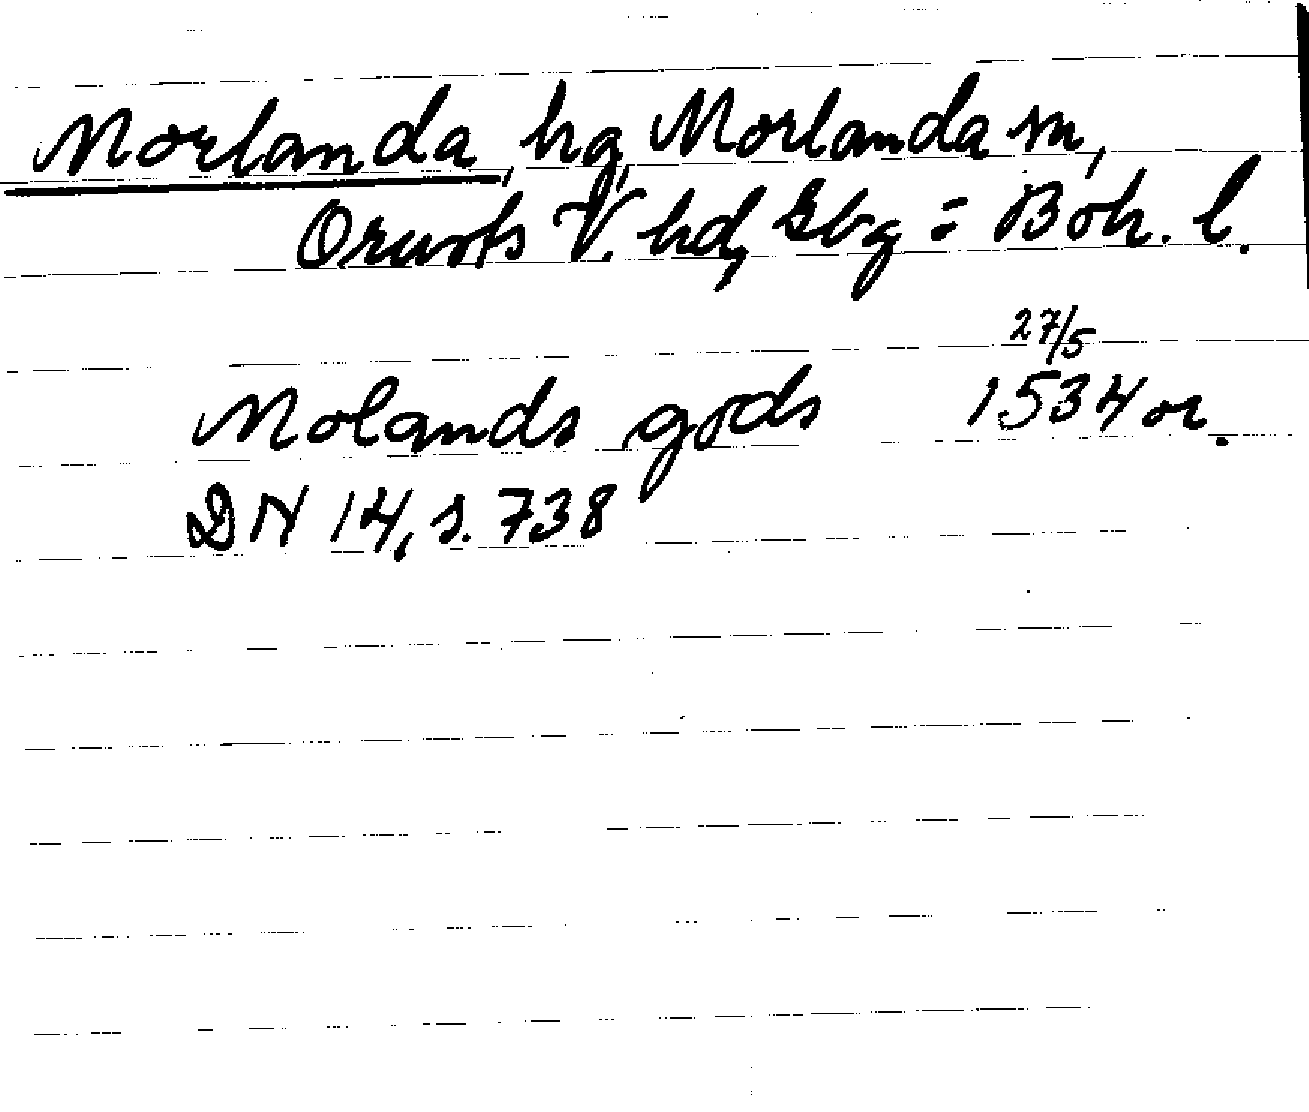 Morlanda, hg, Morlanda sn,
Orusts V. hd, Gbg = Boh. l.
27/5
Molands gods 1534 or.
DN 14, s. 738